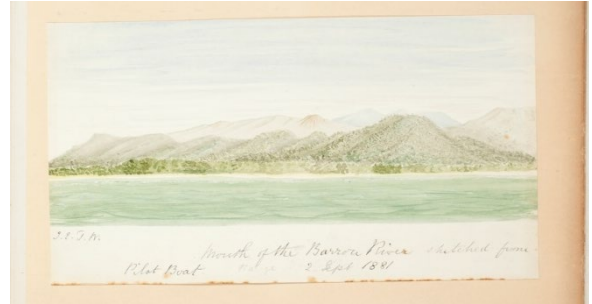 J.S.T.W.
Mouth of the Barron River sketched from
Pilot Boat 2 Sept 1881